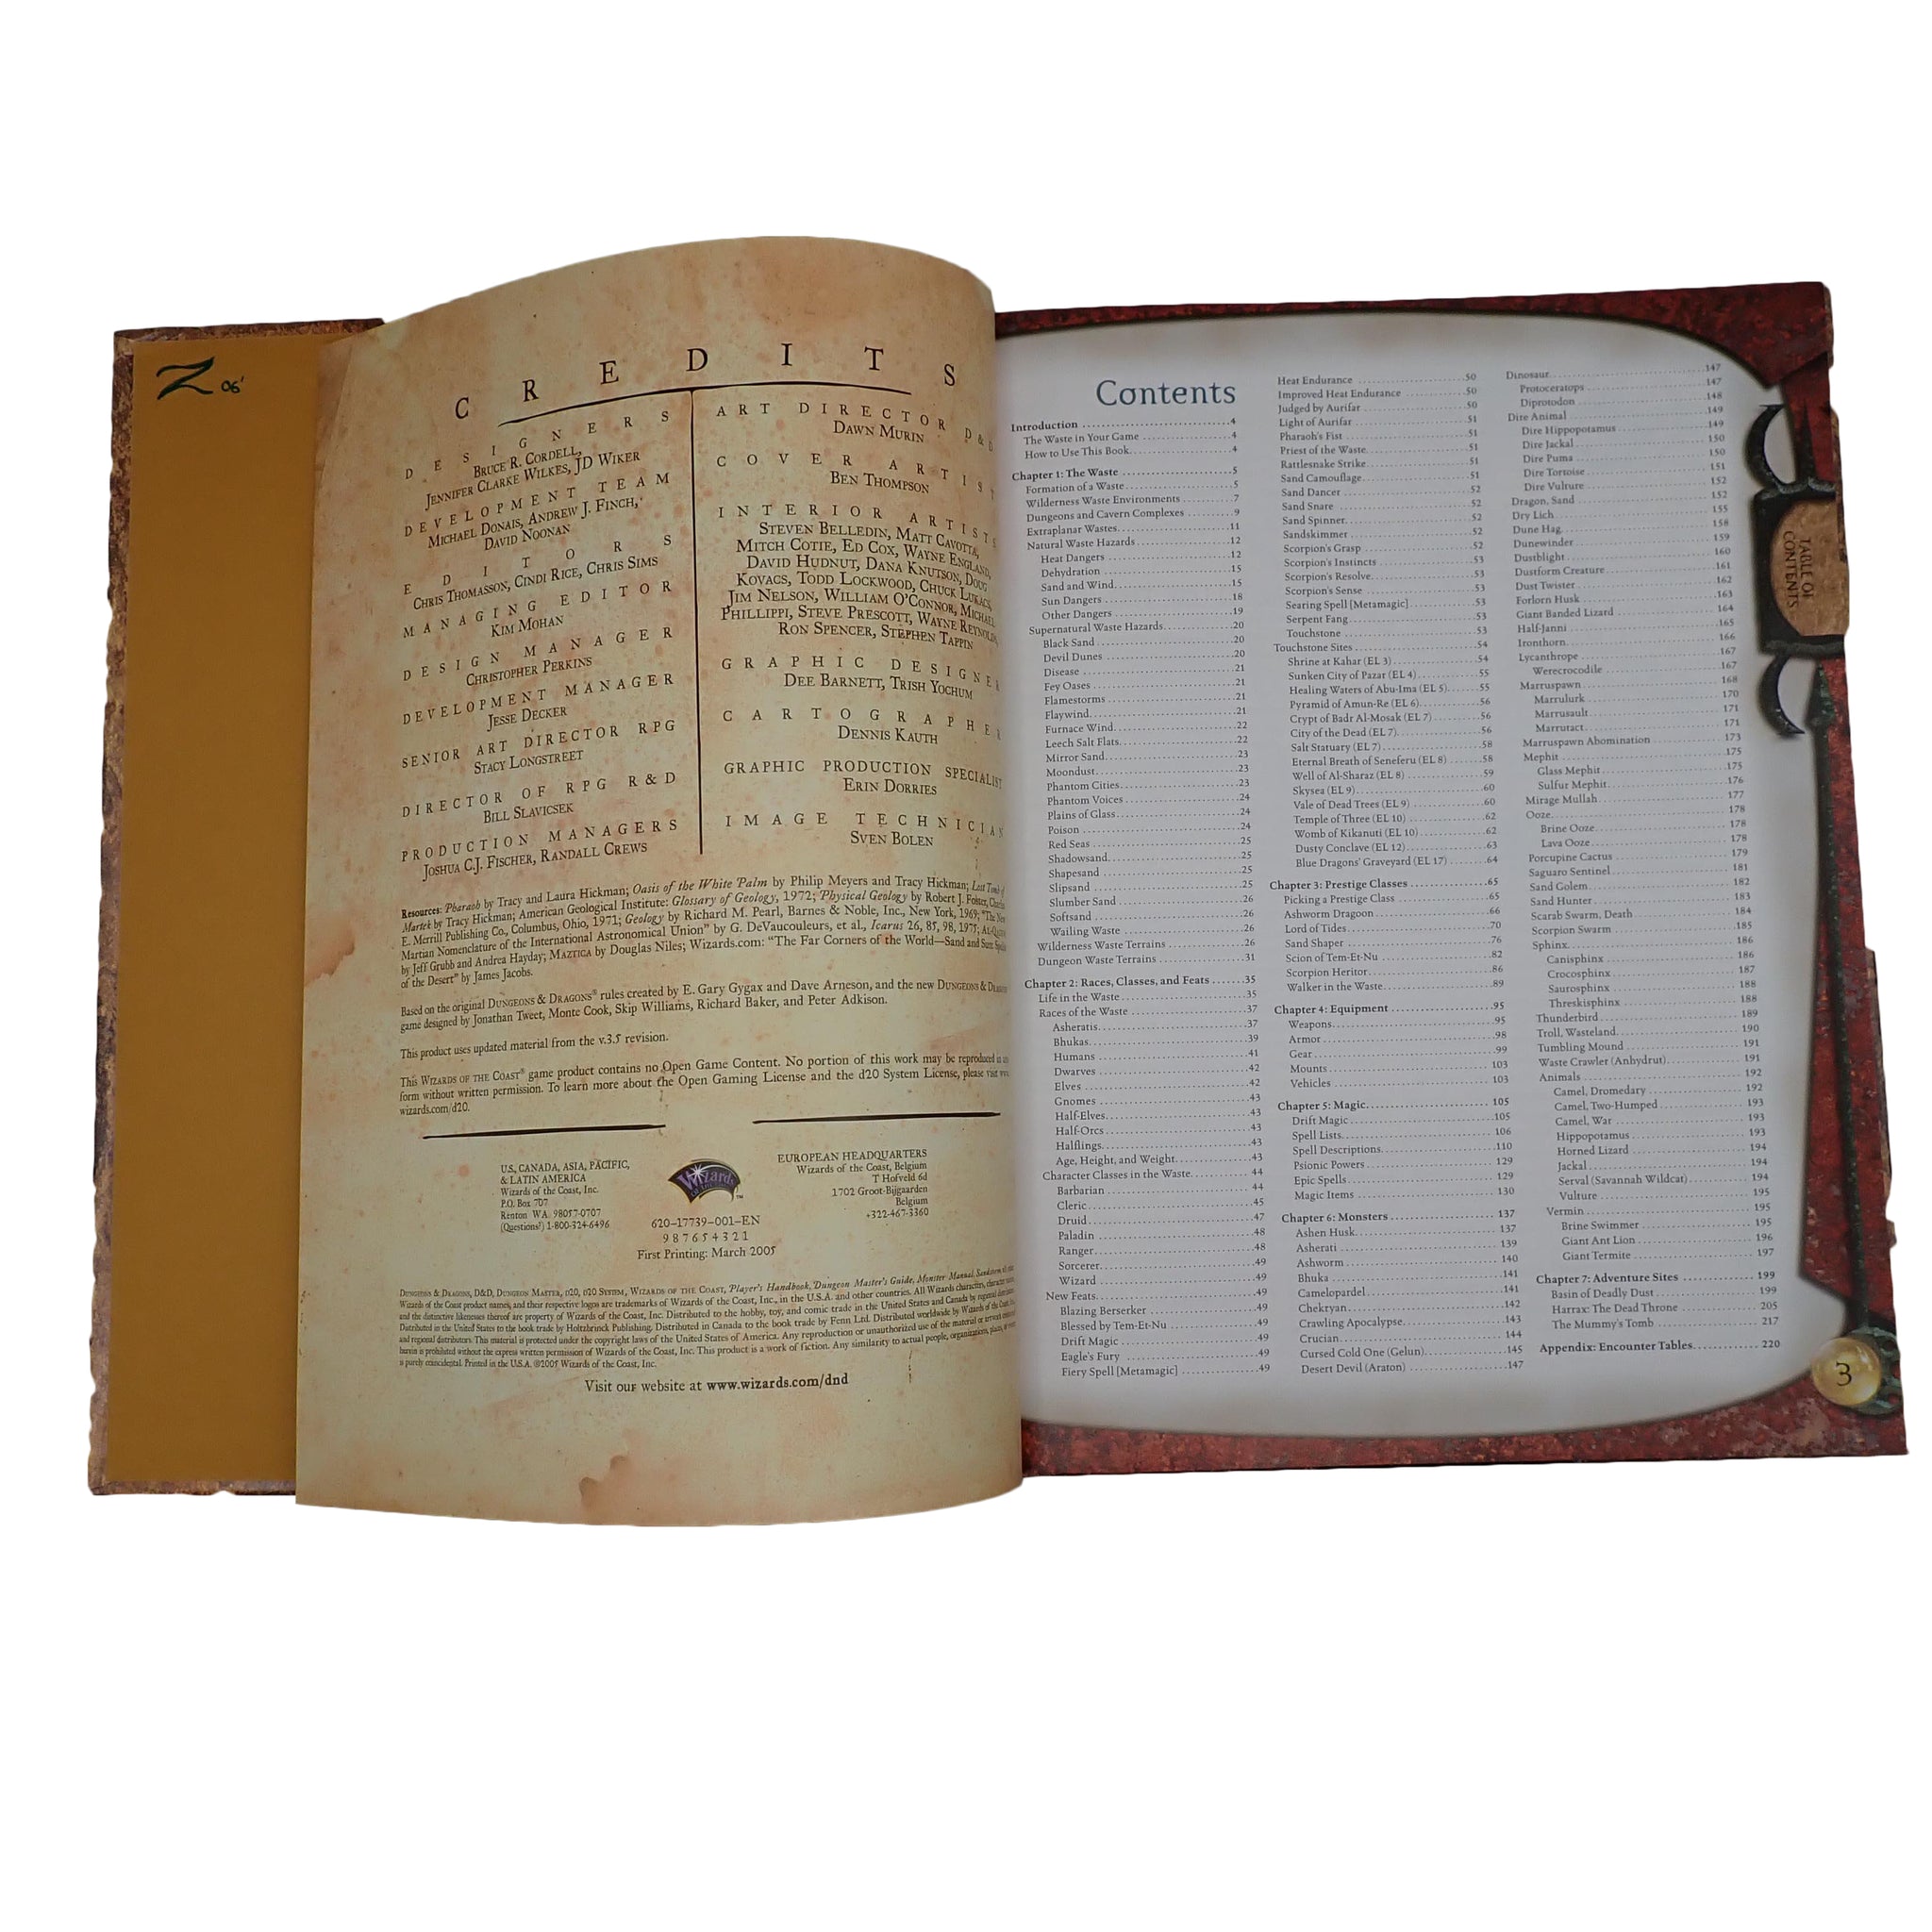 Z 06'
CREDITS
DESIGNERS
BRUCE R. CORDELL,
JENNIFER CLARKE WILKES, JD WIKER
DEVELOPMENT TEAM
MICHAEL DONAIS, ANDREW J. FINCH,
DAVID NOONAN
EDITORS
CHRIS THOMASSON, CINDI RICE, CHRIS SIMS
MANAGING EDITOR
KIM MOHAN
DESIGN MANAGER
CHRISTOPHER PERKINS
DEVELOPMENT MANAGER
JESSE DECKER
SENIOR ART DIRECTOR RPG
STACY LONGSTREET
DIRECTOR OF RPG R&D
BILL SLAVICSEK
PRODUCTION MANAGERS
JOSHUA C.J. FISCHER, RANDALL CREWS
ART DIRECTOR D&D
DAWN MURIN
COVER ARTIST
BEN THOMPSON
INTERIOR ARTISTS
STEVEN BELLEDIN, MATT CAVOTTA,
MITCH COTIE, ED COX, WAYNE ENGLAND,
DAVID HUDNUT, DANA KNUTSON, DOUG
KOVACS, TODD LOCKWOOD, CHUCK LUKACS,
JIM NELSON, WILLIAM O'CONNOR, MICHAEL
PHILLIPPI, STEVE PRESCOTT, WAYNE REYNOLDS,
RON SPENCER, STEPHEN TAPPIN
GRAPHIC DESIGNER
DEE BARNETT, TRISH YOCHUM
CARTOGRAPHER
DENNIS KAUTH
GRAPHIC PRODUCTION SPECIALIST
ERIN DORRIES
IMAGE TECHNICIAN
SVEN BOLEN
Resources: Pharaoh by Tracy and Laura Hickman; Oasis of the White Palm by Philip Meyers and Tracy Hickman; Lost Tomb of
Martek by Tracy Hickman; American Geological Institute: Glossary of Geology, 1972; Physical Geology by Robert J. Foster, Charles
E. Merrill Publishing Co., Columbus, Ohio, 1971; Geology by Richard M. Pearl, Barnes & Noble, Inc., New York, 1969; "The New
Martian Nomenclature of the International Astronomical Union" by G. DeVaucouleurs, et al., Icarus 26, 85, 98, 1975; AL-QADIM
by Jeff Grubb and Andrea Hayday; MAZTICA by Douglas Niles; Wizards.com: "The Far Corners of the World—Sand and Sun: Spells
of the Desert" by James Jacobs.
Based on the original DUNGEONS & DRAGONS® rules created by E. Gary Gygax and Dave Arneson, and the new DUNGEONS & DRAGONS
game designed by Jonathan Tweet, Monte Cook, Skip Williams, Richard Baker, and Peter Adkison.
This product uses updated material from the v.3.5 revision.
This WIZARDS OF THE COAST® game product contains no Open Game Content. No portion of this work may be reproduced in any
form without written permission. To learn more about the Open Gaming License and the d20 System License, please visit www.
wizards.com/d20.
U.S., CANADA, ASIA, PACIFIC,
& LATIN AMERICA
Wizards of the Coast, Inc.
P.O. Box 707
Renton WA 98057-0707
(Questions?) 1-800-324-6496
Wizards OF THE COAST ™
620-17739-001-EN
9 8 7 6 5 4 3 2 1
First Printing: March 2005
EUROPEAN HEADQUARTERS
Wizards of the Coast, Belgium
T Hofveld 6d
1702 Groot-Bijgaarden
Belgium
+322-467-3360
DUNGEONS & DRAGONS, D&D, DUNGEON MASTER, d20, d20 SYSTEM, WIZARDS OF THE COAST, Player's Handbook, Dungeon Master's Guide, Monster Manual, Sandstorm, all other
Wizards of the Coast product names, and their respective logos are trademarks of Wizards of the Coast, Inc., in the U.S.A. and other countries. All Wizards characters, character names,
and the distinctive likenesses thereof are property of Wizards of the Coast, Inc. Distributed to the hobby, toy, and comic trade in the United States and Canada by regional distributors.
Distributed in the United States to the book trade by Holtzbrinck Publishing. Distributed in Canada to the book trade by Fenn Ltd. Distributed worldwide by Wizards of the Coast, Inc.
and regional distributors. This material is protected under the copyright laws of the United States of America. Any reproduction or unauthorized use of the material or artwork contained
herein is prohibited without the express written permission of Wizards of the Coast, Inc. This product is a work of fiction. Any similarity to actual people, organizations, places, or events
is purely coincidental. Printed in the U.S.A. ©2005 Wizards of the Coast, Inc.
Visit our website at www.wizards.com/dnd
Contents
Introduction 4
The Waste in Your Game 4
How to Use This Book 4
Chapter 1: The Waste 5
Formation of a Waste 5
Wilderness Waste Environments 7
Dungeons and Cavern Complexes 9
Extraplanar Wastes 11
Natural Waste Hazards 12
Heat Dangers 12
Dehydration 15
Sand and Wind 15
Sun Dangers 18
Other Dangers 19
Supernatural Waste Hazards 20
Black Sand 20
Devil Dunes 20
Disease 21
Fey Oases 21
Flamestorms 21
Flaywind 21
Furnace Wind 22
Leech Salt Flats 22
Mirror Sand 23
Moondust 23
Phantom Cities 23
Phantom Voices 24
Plains of Glass 24
Poison 24
Red Seas 25
Shadowsand 25
Shapesand 25
Slipsand 25
Slumber Sand 26
Softsand 26
Wailing Waste 26
Wilderness Waste Terrains 26
Dungeon Waste Terrains 31
Chapter 2: Races, Classes, and Feats 35
Life in the Waste 35
Races of the Waste 37
Asheratis 37
Bhukas 39
Humans 41
Dwarves 42
Elves 42
Gnomes 43
Half-Elves 43
Half-Orcs 43
Halflings 43
Age, Height, and Weight 43
Character Classes in the Waste 44
Barbarian 44
Cleric 45
Druid 47
Paladin 48
Ranger 48
Sorcerer 49
Wizard 49
New Feats 49
Blazing Berserker 49
Blessed by Tem-Et-Nu 49
Drift Magic 49
Eagle's Fury 49
Fiery Spell [Metamagic] 49
Heat Endurance 50
Improved Heat Endurance 50
Judged by Aurifar 50
Light of Aurifar 51
Pharaoh's Fist 51
Priest of the Waste 51
Rattlesnake Strike 51
Sand Camouflage 51
Sand Dancer 52
Sand Snare 52
Sand Spinner 52
Sandskimmer 52
Scorpion's Grasp 52
Scorpion's Instincts 53
Scorpion's Resolve 53
Scorpion's Sense 53
Searing Spell [Metamagic] 53
Serpent Fang 53
Touchstone 53
Touchstone Sites 54
Shrine at Kahar (EL 3) 54
Sunken City of Pazar (EL 4) 55
Healing Waters of Abu-Ima (EL 5) 55
Pyramid of Amun-Re (EL 6) 56
Crypt of Badr Al-Mosak (EL 7) 56
City of the Dead (EL 7) 56
Salt Statuary (EL 7) 58
Eternal Breath of Seneferu (EL 8) 58
Well of Al-Sharaz (EL 8) 59
Skysea (EL 9) 60
Vale of Dead Trees (EL 9) 60
Temple of Three (EL 10) 62
Womb of Kikanuti (EL 10) 62
Dusty Conclave (EL 12) 63
Blue Dragons' Graveyard (EL 17) 64
Chapter 3: Prestige Classes 65
Picking a Prestige Class 65
Ashworm Dragoon 66
Lord of Tides 70
Sand Shaper 76
Scion of Tem-Et-Nu 82
Scorpion Heritor 86
Walker in the Waste 89
Chapter 4: Equipment 95
Weapons 95
Armor 98
Gear 99
Mounts 103
Vehicles 103
Chapter 5: Magic 105
Drift Magic 105
Spell Lists 106
Spell Descriptions 110
Psionic Powers 129
Epic Spells 129
Magic Items 130
Chapter 6: Monsters 137
Ashen Husk 137
Asherati 139
Ashworm 140
Bhuka 141
Camelopardel 141
Chekryan 142
Crawling Apocalypse 143
Crucian 144
Cursed Cold One (Gelun) 145
Desert Devil (Araton) 147
Dinosaur 147
Protoceratops 147
Diprotodon 148
Dire Animal 149
Dire Hippopotamus 149
Dire Jackal 150
Dire Puma 150
Dire Tortoise 151
Dire Vulture 152
Dragon, Sand 152
Dry Lich 155
Dune Hag 158
Dunewinder 159
Dustblight 160
Dustform Creature 161
Dust Twister 162
Forlorn Husk 163
Giant Banded Lizard 164
Half-Janni 165
Ironthorn 166
Lycanthrope 167
Werecrocodile 167
Marruspawn 168
Marrulurk 170
Marrusault 171
Marrutact 171
Marruspawn Abomination 173
Mephit 175
Glass Mephit 175
Sulfur Mephit 176
Mirage Mullah 177
Ooze 178
Brine Ooze 178
Lava Ooze 178
Porcupine Cactus 179
Saguaro Sentinel 181
Sand Golem 182
Sand Hunter 183
Scarab Swarm, Death 184
Scorpion Swarm 185
Sphinx 186
Canisphinx 186
Crocosphinx 187
Saurosphinx 188
Threskisphinx 188
Thunderbird 189
Troll, Wasteland 190
Tumbling Mound 191
Waste Crawler (Anhydrut) 191
Animals 192
Camel, Dromedary 192
Camel, Two-Humped 193
Camel, War 193
Hippopotamus 193
Horned Lizard 194
Jackal 194
Serval (Savannah Wildcat) 194
Vulture 195
Vermin 195
Brine Swimmer 195
Giant Ant Lion 196
Giant Termite 197
Chapter 7: Adventure Sites 199
Basin of Deadly Dust 199
Harrax: The Dead Throne 205
The Mummy's Tomb 217
Appendix: Encounter Tables 220
TABLE OF
CONTENTS
3